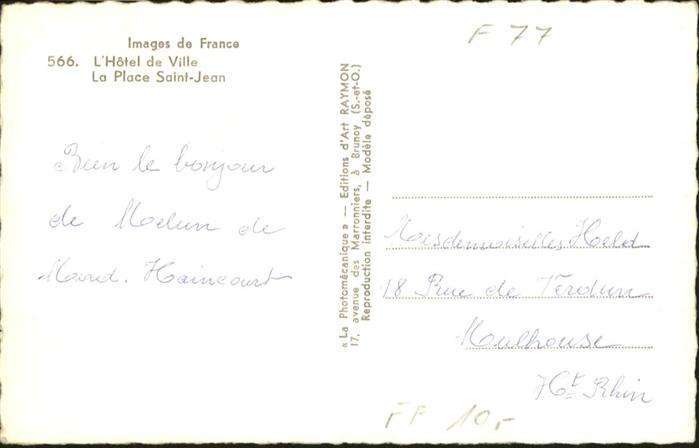 F 77
Images de France
566. L'Hôtel de Ville
La Place Saint-Jean
Bien le bonjour
de Melun de
Mard. Haincourt
« La Photomécanique » — Editions d'Art RAYMON
17, avenue des Marronniers, à Brunoy (S.-et-O.)
Reproduction interdite — Modèle déposé
Mesdemoiselles Held
18 Rue de Verdun
Mulhouse
Ht Rhin
FF 10,-